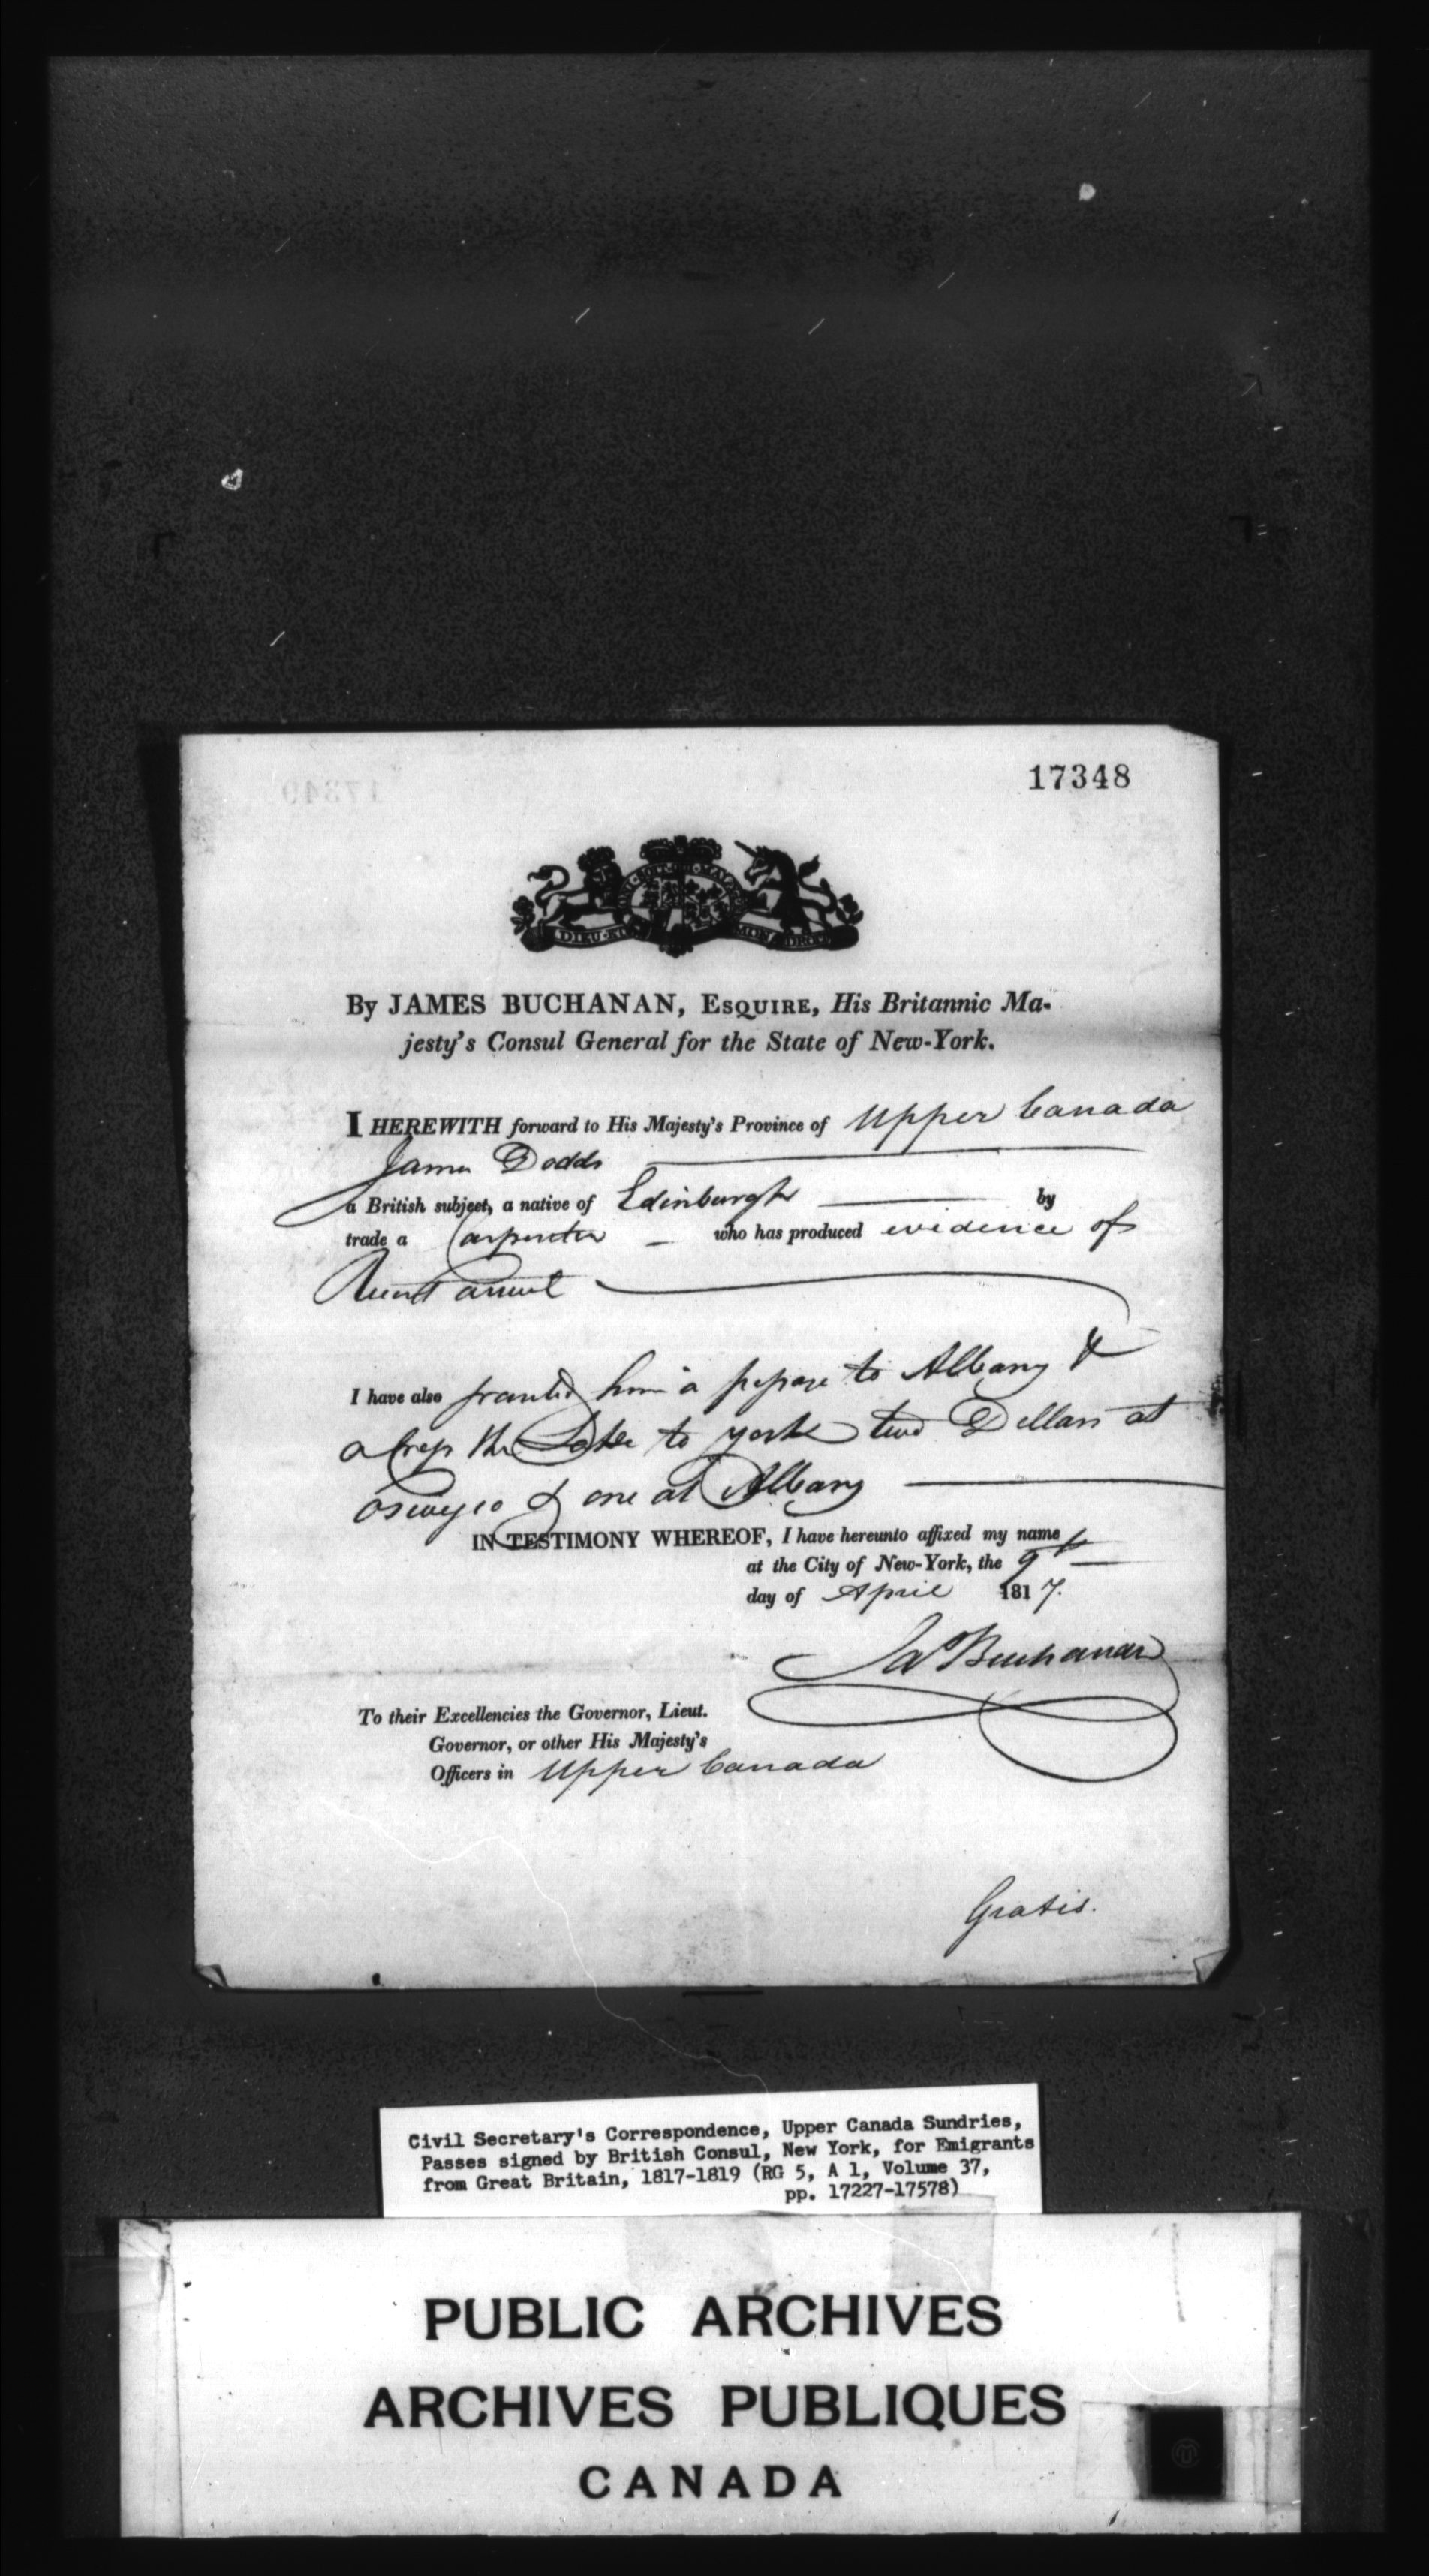 17348
17349
DIEU ET MON DROIT
By JAMES BUCHANAN, ESQUIRE, His Britannic Ma-
jesty's Consul General for the State of New-York.
I HEREWITH forward to His Majesty's Province of Upper Canada
James Dodds
a British subject, a native of Edinburgh by
trade a Carpenter who has produced evidence of
Recent arrival
I have also granted him a passage to Albany &
across the Lake to york two Dollars at
oswego & one at Albany
IN TESTIMONY WHEREOF, I have hereunto affixed my name
at the City of New-York, the 9th
day of April 1817.
Ja Buchanan
To their Excellencies the Governor, Lieut.
Governor, or other His Majesty's
Officers in Upper Canada
Gratis.
Civil Secretary's Correspondence, Upper Canada Sundries,
Passes signed by British Consul, New York, for Emigrants
from Great Britain, 1817-1819 (RG 5, A 1, Volume 37,
pp. 17227-17578)
PUBLIC ARCHIVES
ARCHIVES PUBLIQUES
CANADA